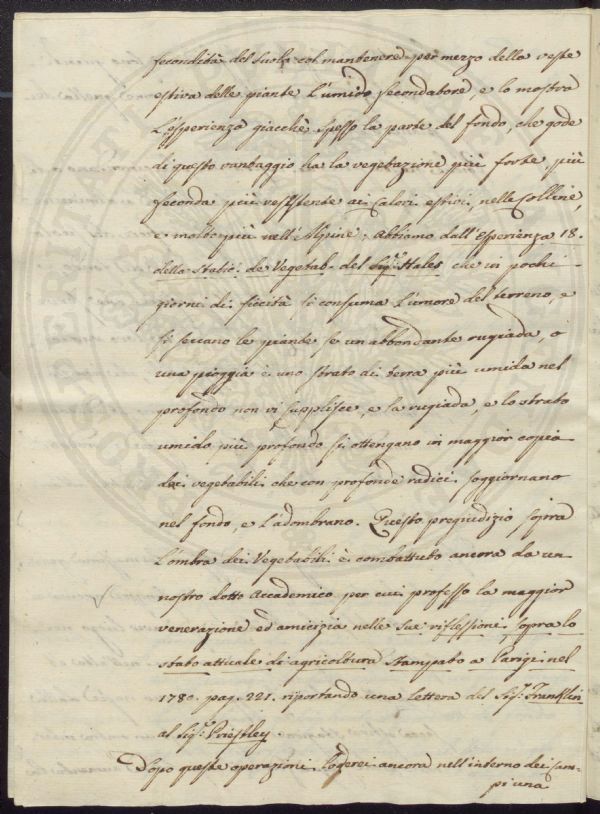 fecondità del suolo col mantenere per mezzo della veste
estiva delle piante l'umido fecondatore, e lo mostra
l'esperienza giacchè spesso la parte del fondo, che gode
di questo vantaggio ha la vegetazione più forte più
feconda più resistente ai calori estivi nelle Colline,
e molto più nell'Alpine. Abbiamo dall'Esperienza 18.
della Static. de Vegetab. del Sigr. Hales che in pochi
giorni di siccità si consuma l'umore del terreno, e
si seccano le piante se un abbondante rugiada, o
una pioggia e uno strato di terra più umida nel
profondo non vi supplisce, e la rugiada, e lo strato
umido più profondo si ottengano in maggior copia
dei vegetabili che con profonde radici soggiornano
nel fondo, e l'adombrano. Questo pregiudizio sopra
l'ombra dei Vegetabili è combattuto ancora da un
nostro dotto Accademico per cui professo la maggior
venerazione ed amicizia nelle sue riflessioni sopra lo
stato attuale di agricoltura stampato a Parigi nel
1780. pag. 221. riportando una Lettera del Sigr. Franklin
al Sigr. Priestley.
Dopo queste operazioni ancora nell'interno dei cam-
pi una